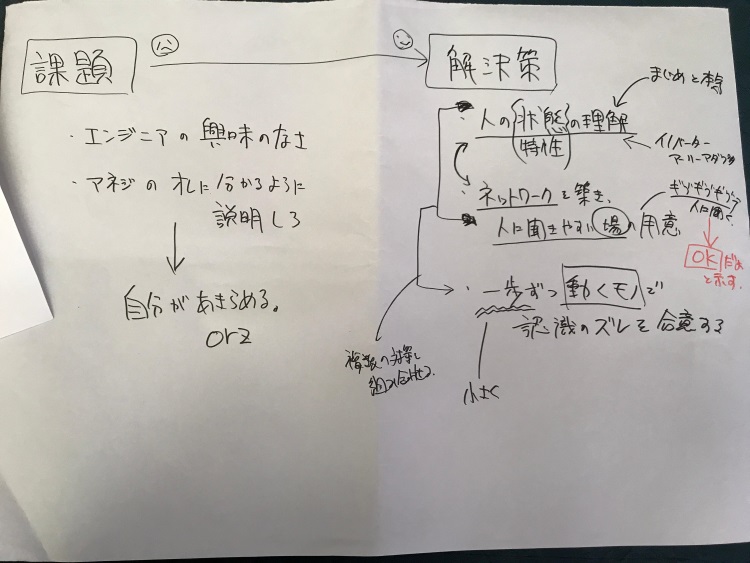 課題
・エンジニアの興味のなさ
・マネジの オレに分かるように
説明しろ
自分があきらめる。
orz
解決策
まじめと
・人の状態の理解
特性
イノベーター
アーリーアダプタ
・ネットワークを築き、
人に聞きやすい場の用意
ギブギブギブで
人に聞く
OKだよ
と示す。
・一歩ずつ動くモノで
認識のズレを合意する
複数の対策を
組み合わせる
小さく